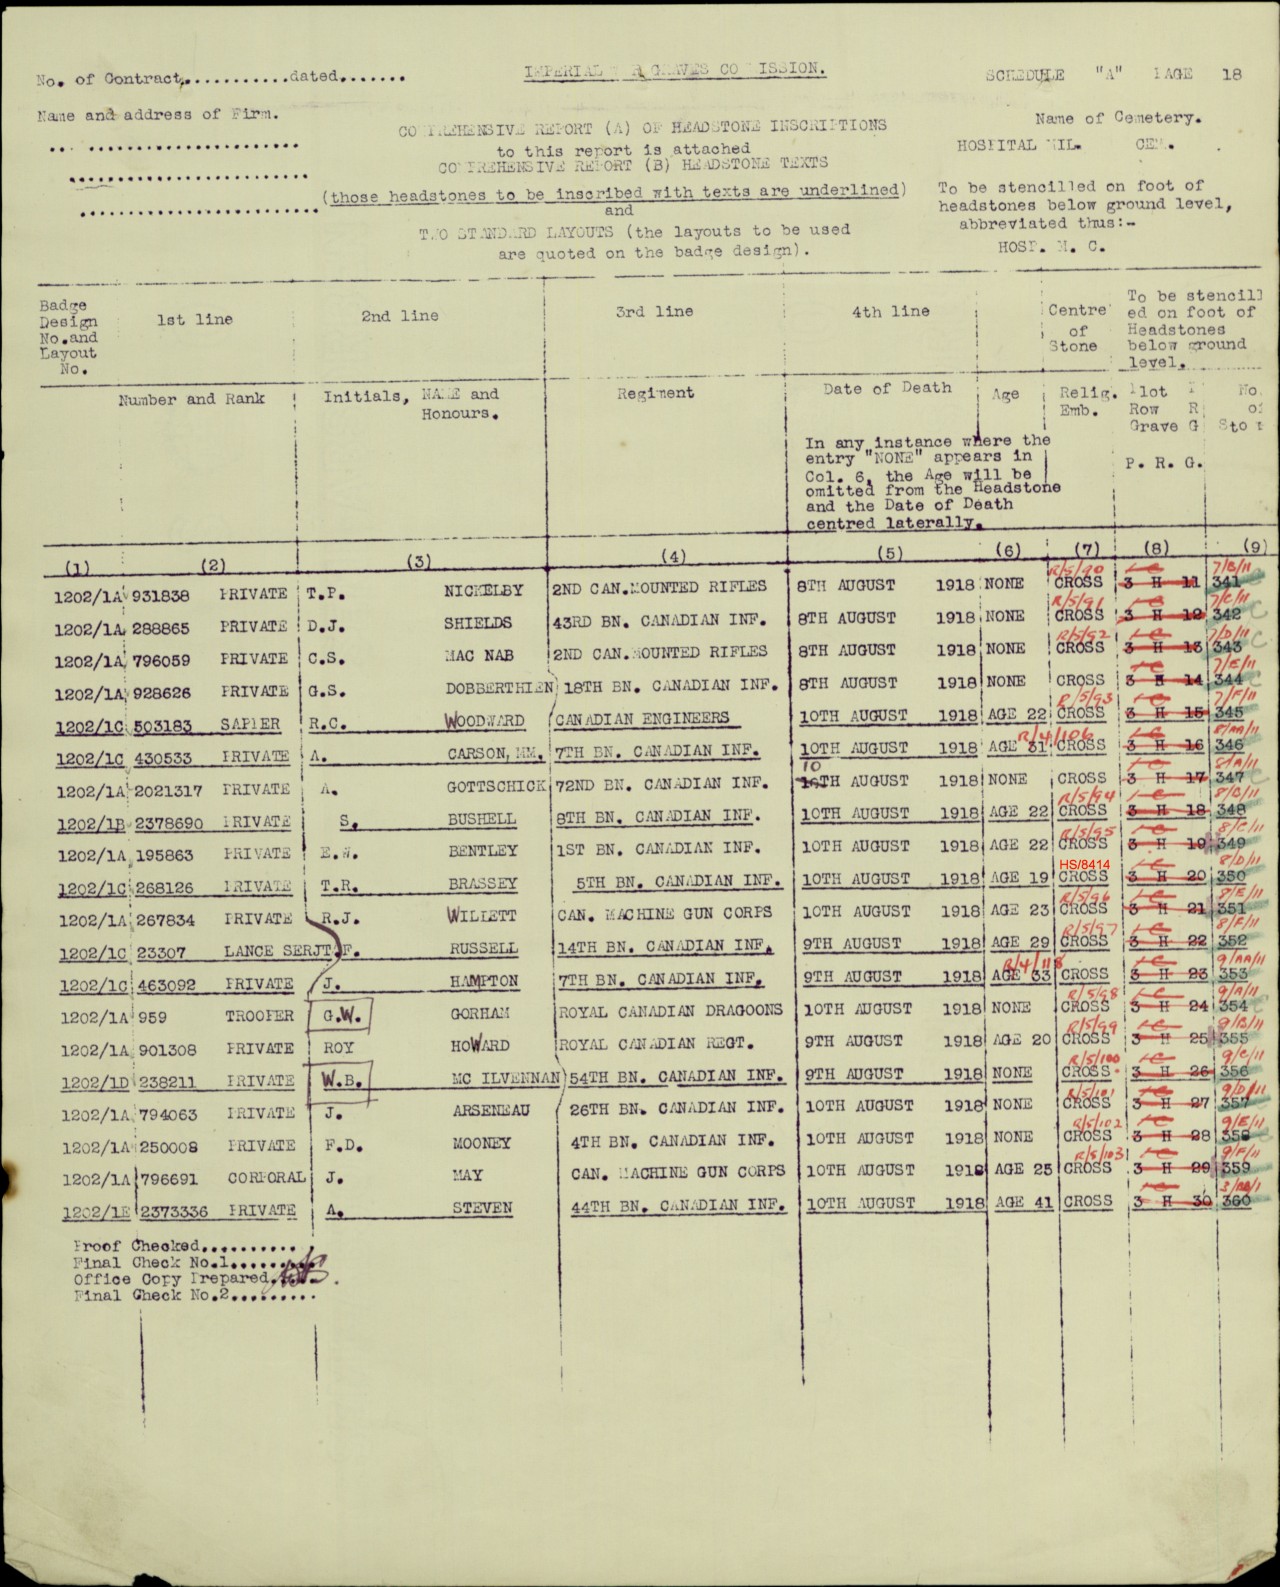 No. of Contract............dated.......
IMPERIAL W R GRAVES CO ISSION.
SCHEDULE "A" PAGE 18
Name and address of Firm.
Name of Cemetery.
HOSPITAL MIL. CEM.
COMPREHENSIVE REPORT (A) OF HEADSTONE INSCRIPTIONS
to this report is attached
COMPREHENSIVE REPORT (B) HEADSTONE TEXTS
(those headstones to be inscribed with texts are underlined)
and
TWO STANDARD LAYOUTS (the layouts to be used
are quoted on the badge design).
To be stencilled on foot of
headstones below ground level,
abbreviated thus:-
HOSP. M. C.
Badge Design No.and Layout No.
1st line
2nd line
3rd line
4th line
Centre of Stone
To be stencill
ed on foot of
Headstones
below ground
level.
Number and Rank
Initials, NAME and Honours.
Regiment
Date of Death
Age
Relig. Emb.
Plot P
Row R
Grave G
No.
of
Sto
In any instance where the
entry "NONE" appears in
Col. 6, the Age will be
omitted from the Headstone
and the Date of Death
centred laterally.
P. R. G.
(1) (2) (3) (4) (5) (6) (7) (8) (9)
R/5/90 7/B/11
1202/1A 931838 PRIVATE T.P. NICKELBY 2ND CAN.MOUNTED RIFLES 8TH AUGUST 1918 NONE CROSS 3 H 11 341
R/5/91 7/C/11
1202/1A 288865 PRIVATE D.J. SHIELDS 43RD BN. CANADIAN INF. 8TH AUGUST 1918 NONE CROSS 3 H 12 342
R/5/92 7/D/11
1202/1A 796059 PRIVATE C.S. MAC NAB 2ND CAN.MOUNTED RIFLES 8TH AUGUST 1918 NONE CROSS 3 H 13 343
7/E/11
1202/1A 928626 PRIVATE G.S. DOBBERTHIEN 18TH BN. CANADIAN INF. 8TH AUGUST 1918 NONE CROSS 3 H 14 344
R/5/93 7/F/11
1202/1C 503183 SAPPER R.C. WOODWARD CANADIAN ENGINEERS 10TH AUGUST 1918 AGE 22 CROSS 3 H 15 345
R/4/106 8/AA/11
1202/1C 430533 PRIVATE A. CARSON, MM. 7TH BN. CANADIAN INF. 10TH AUGUST 1918 AGE 31 CROSS 3 H 16 346
10 8/A/11
1202/1A 2021317 PRIVATE A. GOTTSCHICK 72ND BN. CANADIAN INF. TH AUGUST 1918 NONE CROSS 3 H 17 347
R/5/94 8/B/11
1202/1B 2378690 PRIVATE S. BUSHELL 8TH BN. CANADIAN INF. 10TH AUGUST 1918 AGE 22 CROSS 3 H 18 348
R/5/95 8/C/11
1202/1A 195863 PRIVATE E.W. BENTLEY 1ST BN. CANADIAN INF. 10TH AUGUST 1918 AGE 22 CROSS 3 H 19 349
HS/8414 8/D/11
1202/1C 268126 PRIVATE T.R. BRASSEY 5TH BN. CANADIAN INF. 10TH AUGUST 1918 AGE 19 CROSS 3 H 20 350
R/5/96 8/E/11
1202/1A 267834 PRIVATE R.J. WILLETT CAN. MACHINE GUN CORPS 10TH AUGUST 1918 AGE 23 CROSS 3 H 21 351
R/5/97 8/F/11
1202/1C 23307 LANCE SERJT F. RUSSELL 14TH BN. CANADIAN INF. 9TH AUGUST 1918 AGE 29 CROSS 3 H 22 352
R/4/118 9/AA/11
1202/1C 463092 PRIVATE J. HAMPTON 7TH BN. CANADIAN INF. 9TH AUGUST 1918 AGE 33 CROSS 3 H 23 353
R/5/98 9/A/11
1202/1A 959 TROOPER G.W. GORHAM ROYAL CANADIAN DRAGOONS 10TH AUGUST 1918 NONE CROSS 3 H 24 354
R/5/99 9/B/11
1202/1A 901308 PRIVATE ROY HOWARD ROYAL CANADIAN REGT. 9TH AUGUST 1918 AGE 20 CROSS 3 H 25 355
R/5/100 9/C/11
1202/1D 238211 PRIVATE W.B. MC ILVENNAN 54TH BN. CANADIAN INF. 9TH AUGUST 1918 NONE CROSS 3 H 26 356
R/5/101 9/D/11
1202/1A 794063 PRIVATE J. ARSENEAU 26TH BN. CANADIAN INF. 10TH AUGUST 1918 NONE CROSS 3 H 27 357
R/5/102 9/E/11
1202/1A 250008 PRIVATE F.D. MOONEY 4TH BN. CANADIAN INF. 10TH AUGUST 1918 NONE CROSS 3 H 28 358
R/5/103 9/F/11
1202/1A 796691 CORPORAL J. MAY CAN. MACHINE GUN CORPS 10TH AUGUST 1918 AGE 25 CROSS 3 H 29 359
1202/1E 2373336 PRIVATE A. STEVEN 44TH BN. CANADIAN INF. 10TH AUGUST 1918 AGE 41 CROSS 3 H 30 360
Proof Checked..........
Final Check No.1.........
Office Copy Prepared......
Final Check No.2.........